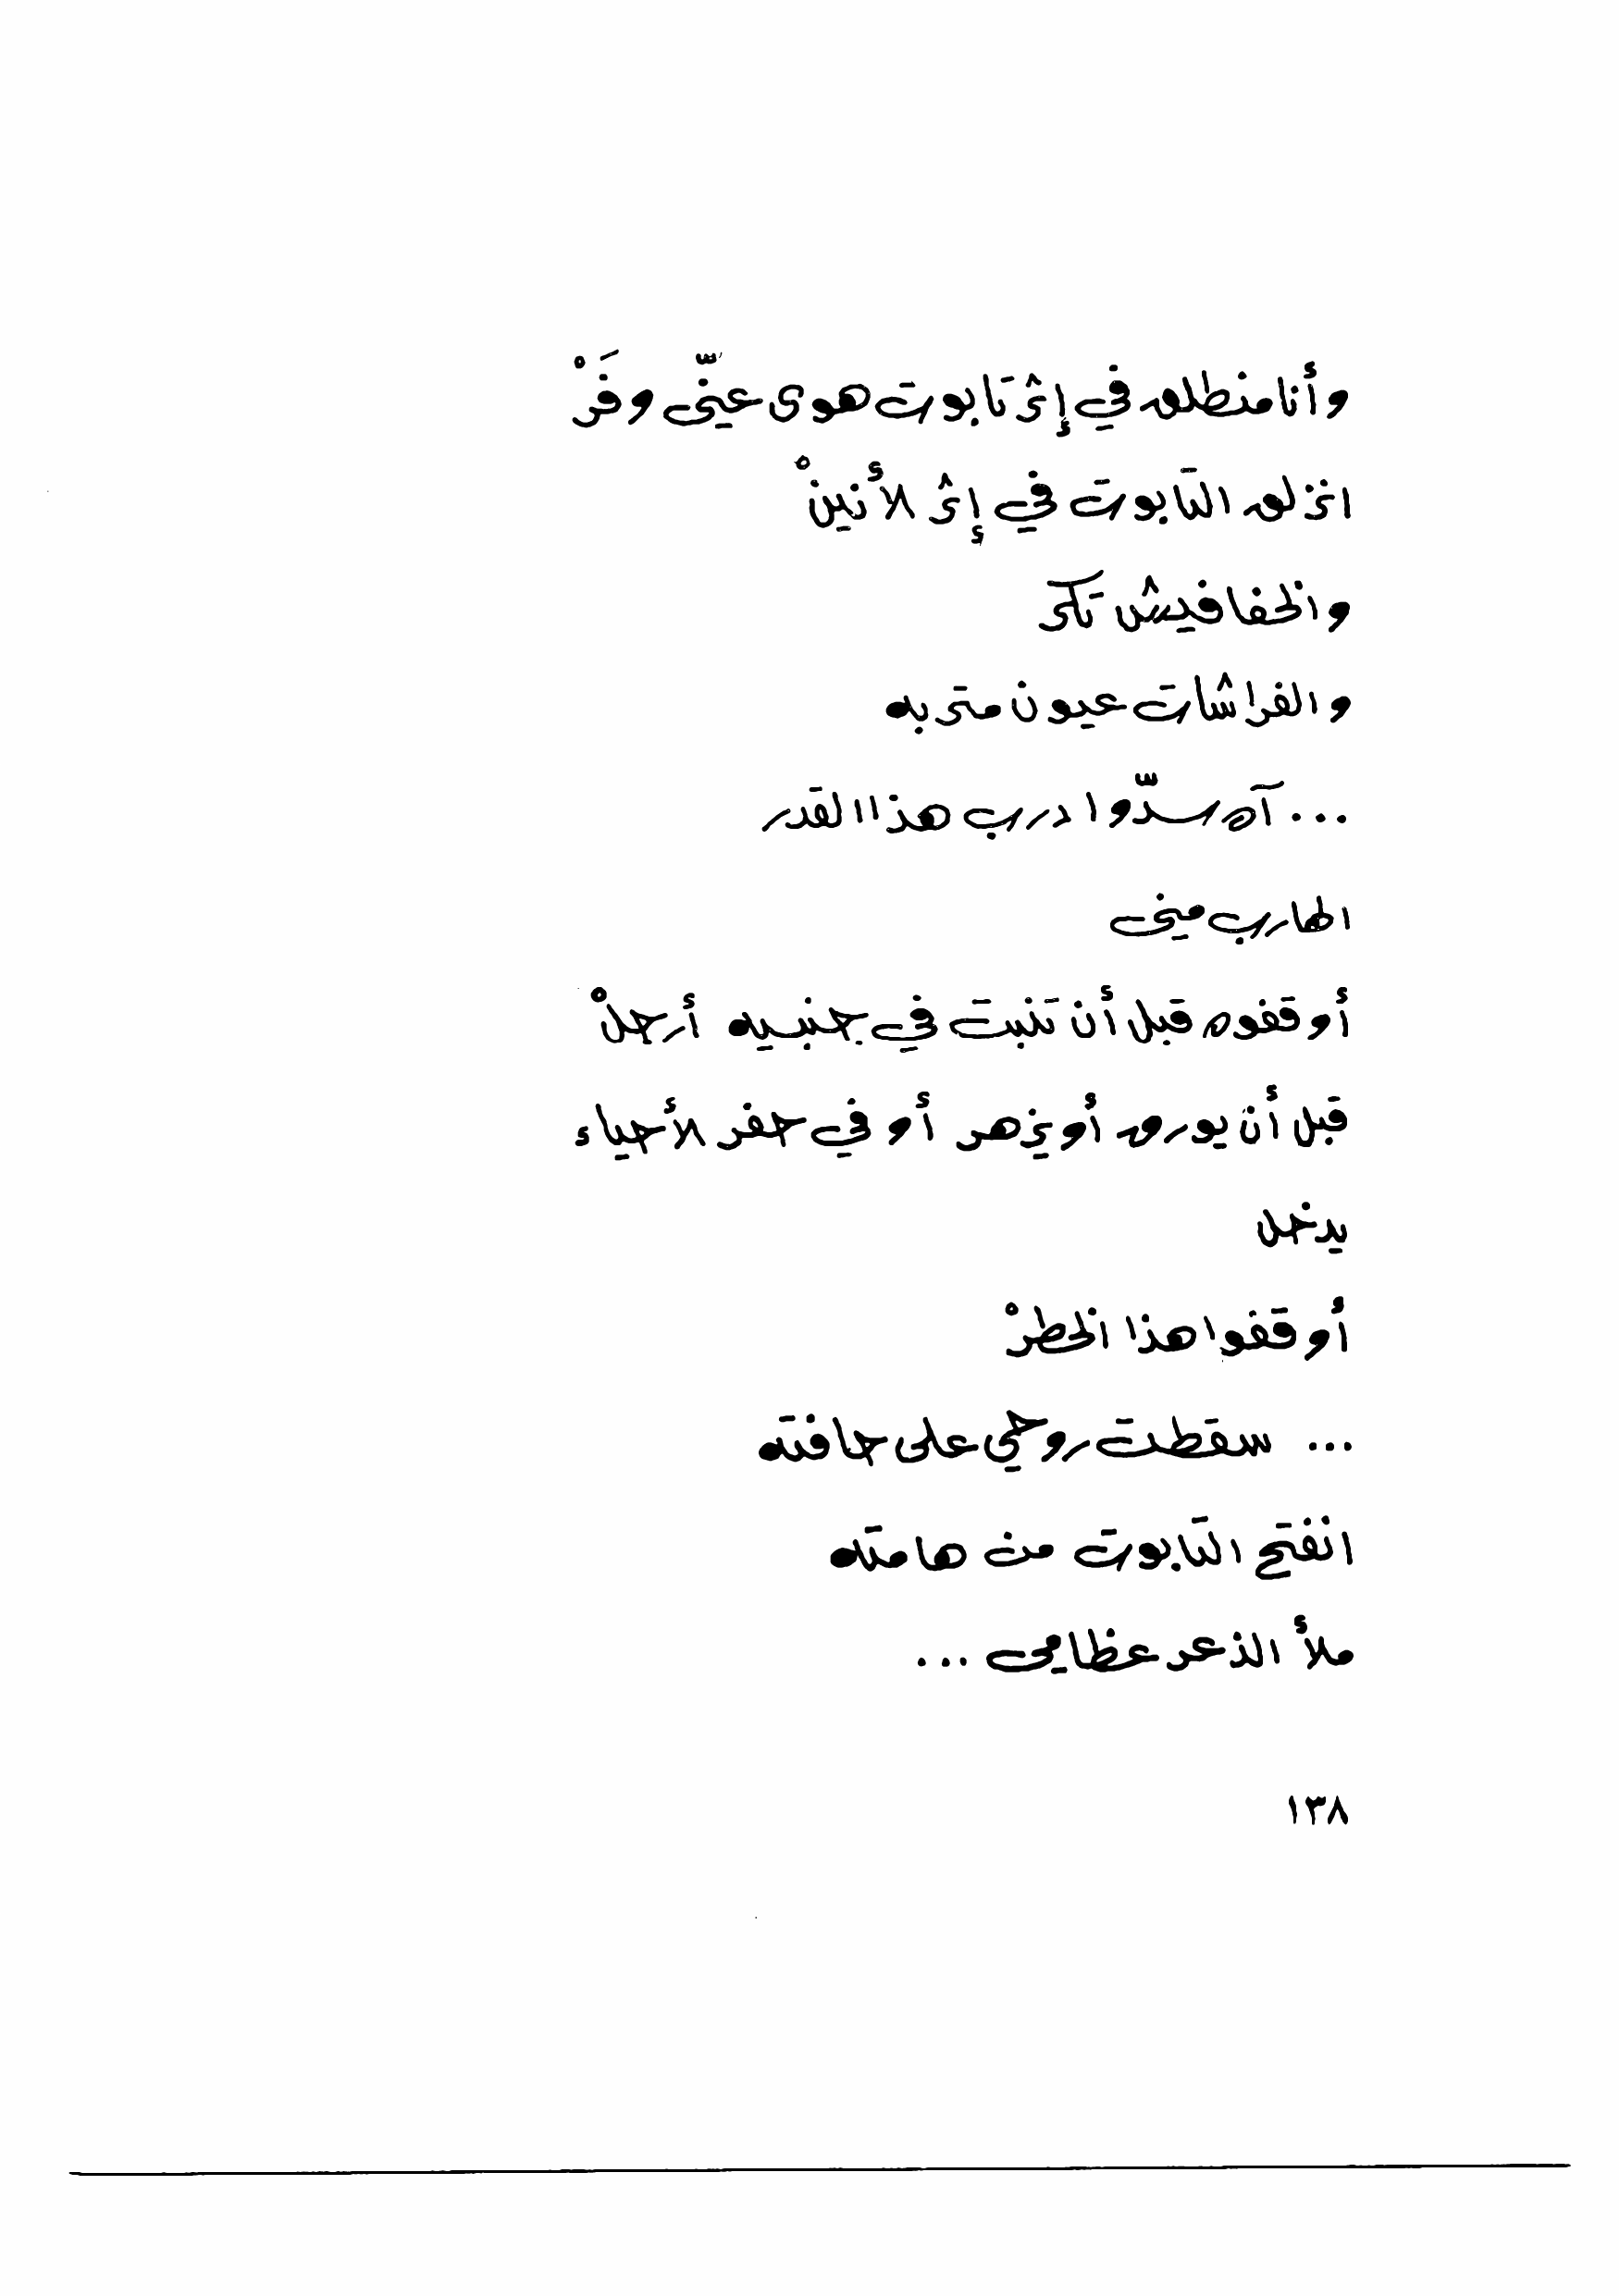 وأنا منطلق في إثر تابوت هوى عنّي وفَرْ
انزلق التابوت في إثر الأنينْ
والخفافيش تكر
والفراشات عيون متربه
... آه سدّوا درب هذا القدر
الهارب مني
أوقفوه قبل أن تنبت في جنبيه أرجلْ
قبل أن يورق أو يزهر أو في حفر الأحياء
يدخل
أوقفوا هذا الخطرْ
... سقطت روحي على حافته
انفتح التابوت من هامته
ملأ الذعر عظامي ...
١٣٨